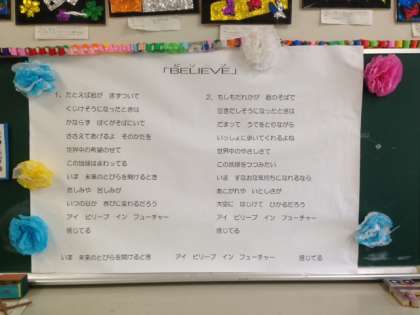 「BELIEVE」
1、たとえば君が　傷ついて
くじけそうになったときは
かならず　ぼくがそばにいて
ささえてあげるよ　そのかたを
世界中の希望のせて
この地球はまわってる
いま　未来のとびらを開けるとき
悲しみや　苦しみが
いつの日か　喜びに変わるだろう
アイ　ビリーブ　イン　フューチャー
信じてる
2、もしもだれかが　君のそばで
泣きだしそうになったときは
だまって　うでをとりながら
いっしょに歩いてくれるよね
世界中のやさしさで
この地球をつつみたい
いま　すなおな気持ちになれるなら
あこがれや　いとしさが
大空に　はじけて　ひかるだろう
アイ　ビリーブ　イン　フューチャー
信じてる
いま　未来のとびらを開けるとき　アイ　ビリーブ　イン　フューチャー　信じてる